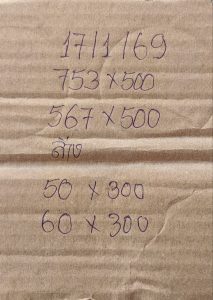 17/1/69
753 x 500
567 x 500
ล่าง
50 x 300
60 x 300